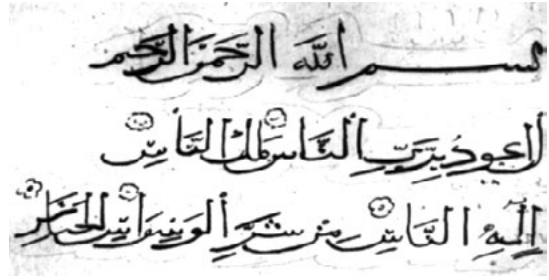 بسم الله الرَّحْمَنِ الرَّحِيمِ
أعوذُ بِرَبِّ ألنَّاسِ مَلِكِ النَّاسِ
إِلَهِ النَّاسِ مِن شَرِّ ألوَسْوَاسِ الخَنَّاسِ